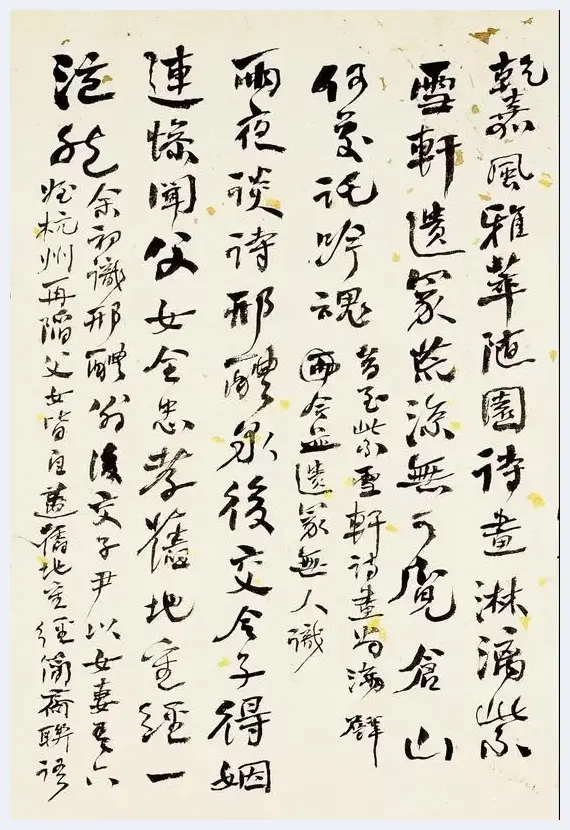 乾嘉風雅萃随園詩畫淋漓紫
雪軒遺冢荒涼無可覓倉山
何處託吟魂
昔至紫雪軒詩畫尚滿壁
今並遺冢無人識
雨夜談詩邢醴泉後交令子得姻
連慘聞父女全忠孝舊地重經一
泫然
余初識邢醴翁後交子尹以女妻吾六
姪杭州再陷父女皆自盡舊地重經簡齋聯語